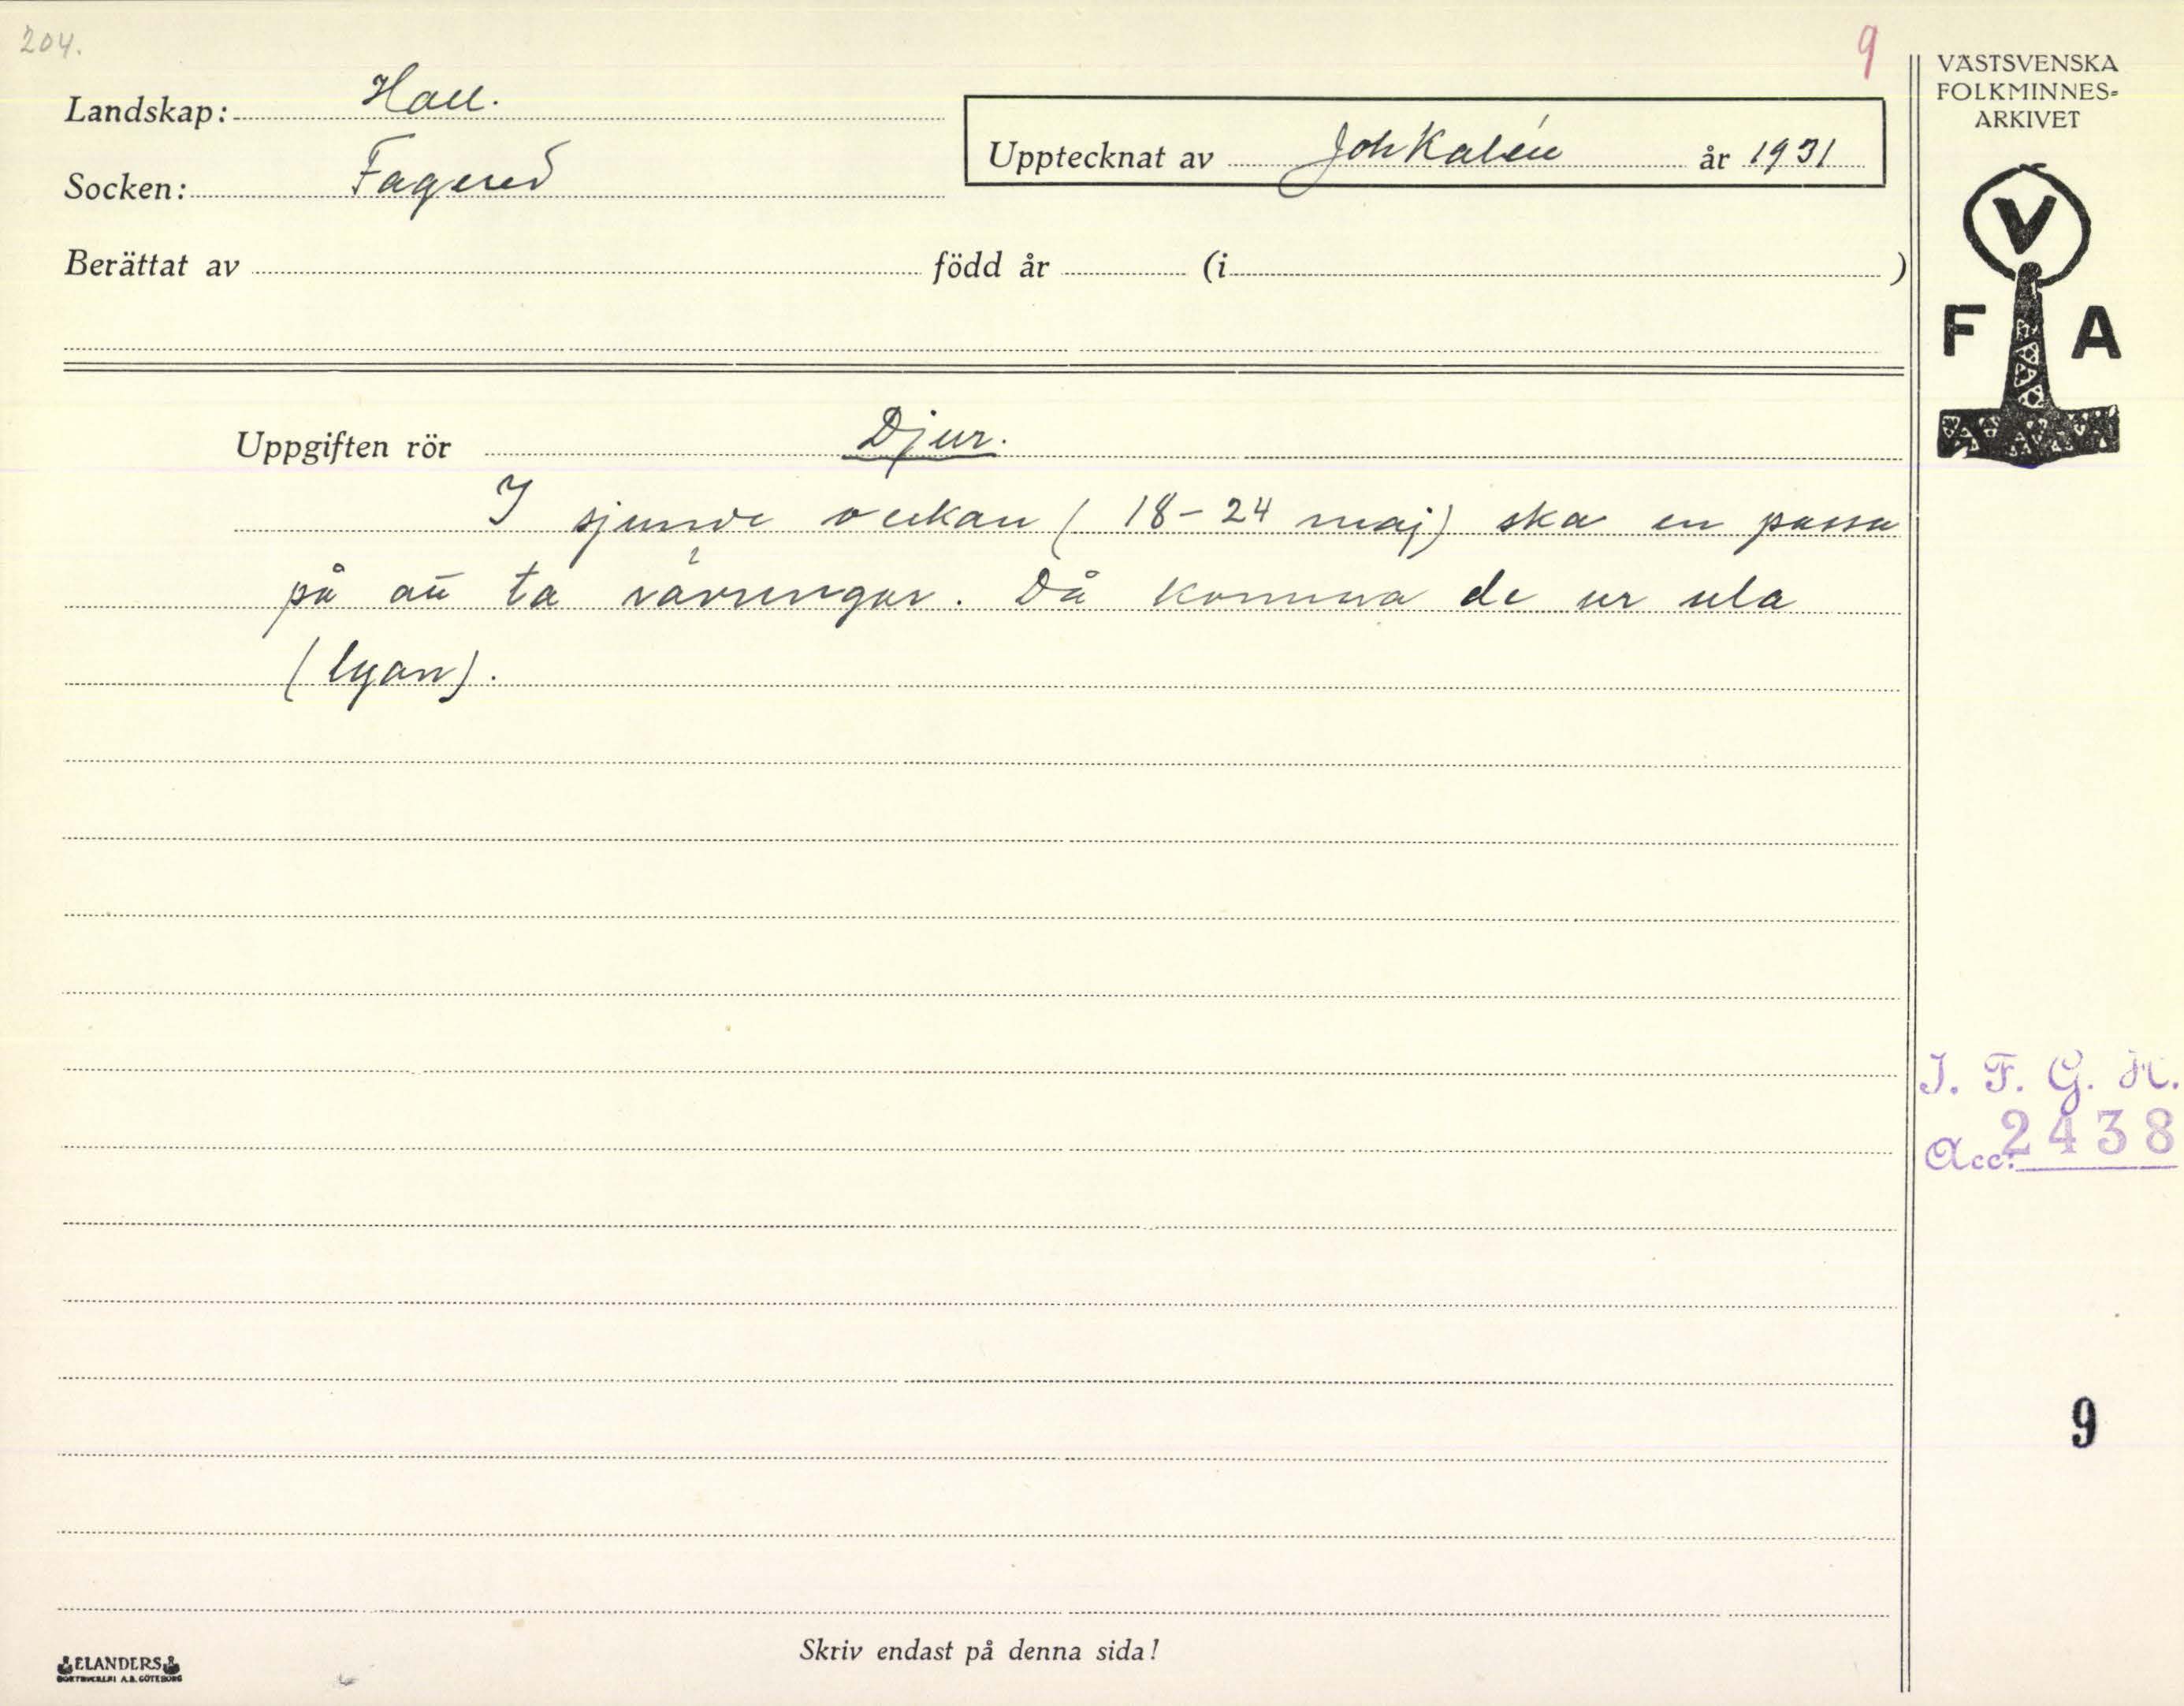 204.
9
VÄSTSVENSKA
FOLKMINNES-
ARKIVET
Landskap: Hall.
Upptecknat av Joh Kalén år 1931
Socken: Fagered
Berättat av född år (i )
V
F A
Uppgiften rör Djur.
I sjunde veckan (18-24 maj) ska en passa
på att ta rävungar. Då komma de ur ula
(lyan).
I. F. G. H.
Acc: 2438
9
Skriv endast på denna sida!
ELANDERS
BOKTRYCKERI A.B. GÖTEBORG